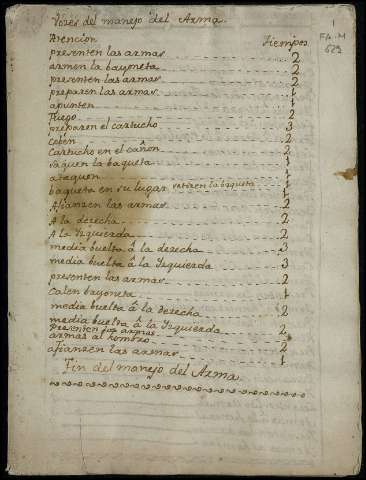 Vozes del manejo del Arma.
1
FA.M
629
Atencion Tiempos
presenten las armas 2
armen la bayoneta 2
presenten las armas 2
preparen las armas 1
apunten 1
Fuego 2
preparen el cartucho 3
ceben 2
Cartucho en el cañon 2
saquen la baqueta 1
ataquen 1
baqueta en su lugar retiren la baqueta 1
Afianzen las armas 2
A la derecha 2
A la Izquierda 2
media buelta â la derecha 3
media buelta â la Izquierda 3
presenten las armas 2
calen bayoneta 1
media buelta â la derecha 2
media buelta â la Izquierda 2
Presenten las armas
armas al hombro 2
afianzen las armas 1
Fin del manejo del Arma.